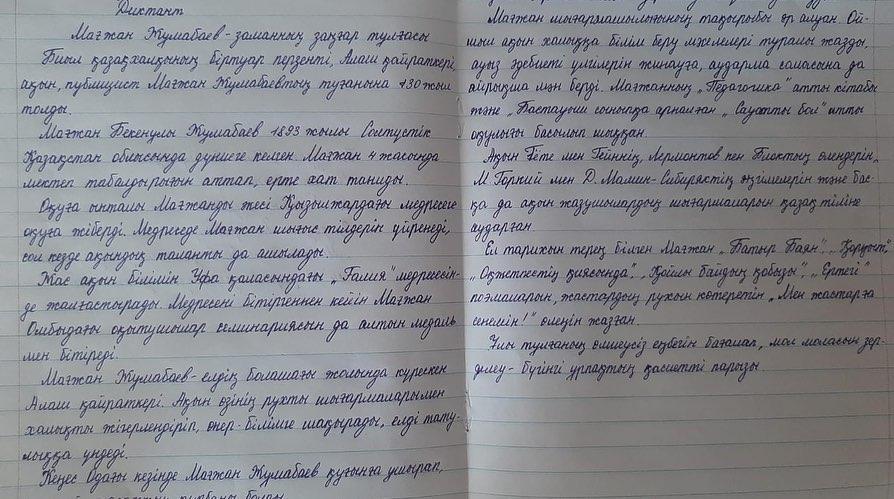 Диктант
Мағжан Жұмабаев - заманның заңғар тұлғасы
Биыл қазақ халқының біртуар перзенті, Алаш қайраткері,
ақын, публицист Мағжан Жұмабаевтың туғанына 130 жыл
толды.
Мағжан Бекенұлы Жұмабаев 1893 жылы Солтүстік
Қазақстан облысында дүниеге келген. Мағжан 4 жасында
мектеп табалдырығын аттап, ерте хат таниды.
Оқуға ынталы Мағжанды әкесі Қызылжардағы медресеге
оқуға жіберді. Медреседе Мағжан шығыс тілдерін үйренеді,
сол кезде ақындық таланты да ашылады.
Жас ақын білімін Уфа қаласындағы „Ғалия" медресесін-
де жалғастырады. Медресені бітіргеннен кейін Мағжан
Омбыдағы оқытушылар семинариясын да алтын медаль
мен бітіреді.
Мағжан Жұмабаев - елдің болашағы жолында күрескен
Алаш қайраткері. Ақын өзінің рухты шығармаларымен
халықты жігерлендіріп, өнер-білімге шақырады, елді тату-
лыққа үндеді.
Кеңес Одағы кезінде Мағжан Жұмабаев қуғынға ұшырап,
құрбаны болды.
Мағжан шығармашылығының тақырыбы әр алуан. Ой-
шыл ақын халыққа білім беру мәселелері туралы жазды,
ауыз әдебиеті үлгілерін жинауға, аударма саласына да
айрықша мән берді. Мағжанның „Педагогика" атты кітабы
және „Бастауыш сыныпқа арналған „Сауатты бол" атты
оқулығы басылып шыққан.
Ақын Гёте мен Гейннің, Лермонтов пен Блоктың өлеңдерін,
М Горкий мен Д. Мамин-Сибиряктің әңгімелерін және бас-
қа да ақын жазушылардың шығармаларын қазақ тіліне
аударған.
Ел тарихын терең білген Мағжан „Батыр Баян", „Қорқыт"
„Оқжетпестің қиясында", „Қойлы байдың қобызы", „Ертегі"
поэмаларын, жастардың рухын көтеретін „Мен жастарға
сенемін!" өлеңін жазған.
Ұлы тұлғаның өлшеусіз еңбегін бағалап, мол мұрасын зер-
делеу - бүгінгі ұрпақтың қасиетті парызы.